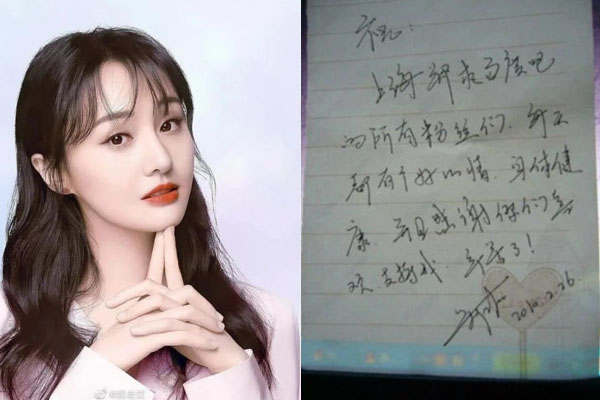 祝:
上海郑爽百度吧
的所有粉丝们,每天
都有个好心情,身体健
康,并且感谢你们喜
欢,支持我,辛苦了!
2010.2.26